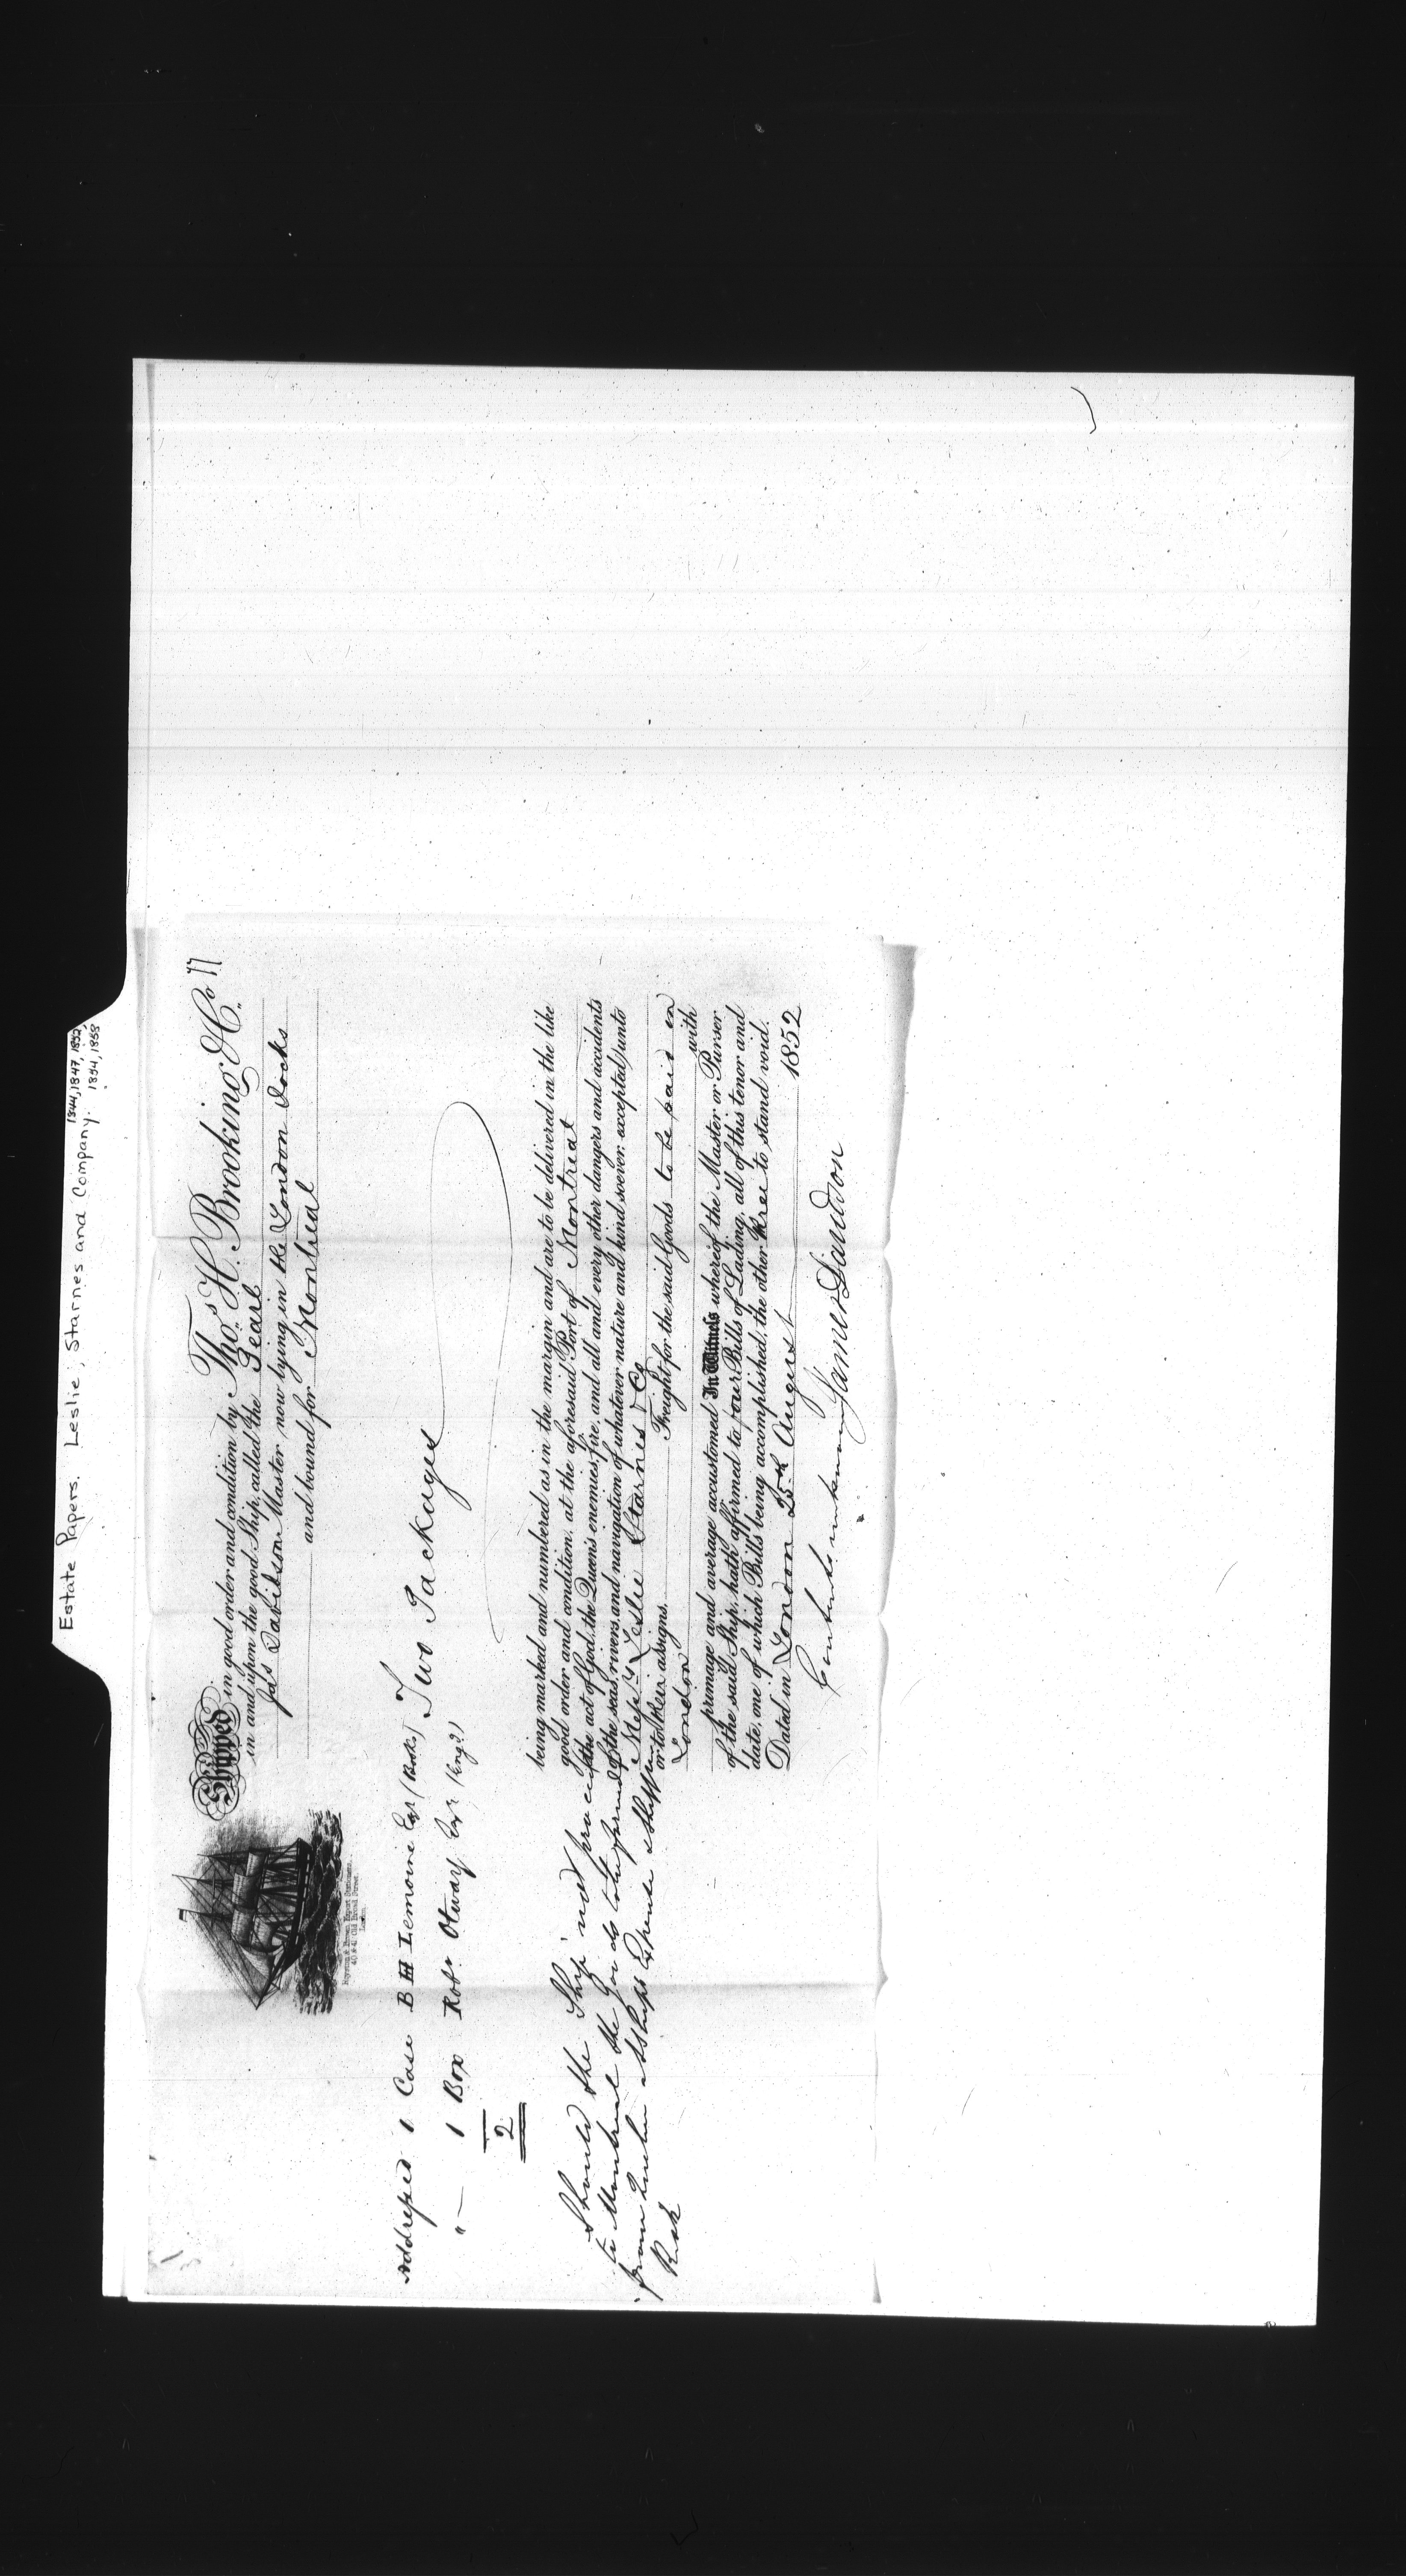 Estate Papers. Leslie, Starnes and Company. 1844, 1847, 1852,
1854, 1858
Shipped in good order and condition by Thos. H. Brooking & Co. 77
in and upon the good Ship, called the Pearl
Jas Davidson Master now lying in the London Docks
and bound for Montreal
40 & 41 Old Broad Street,
London.
Addressed 1 Case B H Lemoine Esqr (Books) Two Packages
" — 1 Box Robt Otway Esqr
2
being marked and numbered as in the margin and are to be delivered in the like
good order and condition, at the aforesaid Port of Montreal
(the act of God, the Queen's enemies, fire, and all and every other dangers and accidents
of the seas, rivers, and navigation of whatever nature and kind soever, excepted) unto
Messrs Leslie Starnes & Co
or to their assigns. Freight for the said Goods to be paid in
London with
primage and average accustomed In Witness whereof the Master or Purser
of the said Ship, hath affirmed to four Bills of Lading, all of this tenor and
date, one of which Bills being accomplished, the other three to stand void.
Dated in London 25th August 1852
Contents unknown James
Should the Ship not proceed
to Montreal the Goods to be forwarded
from Quebec at Ships Expense & Shippers
Risk